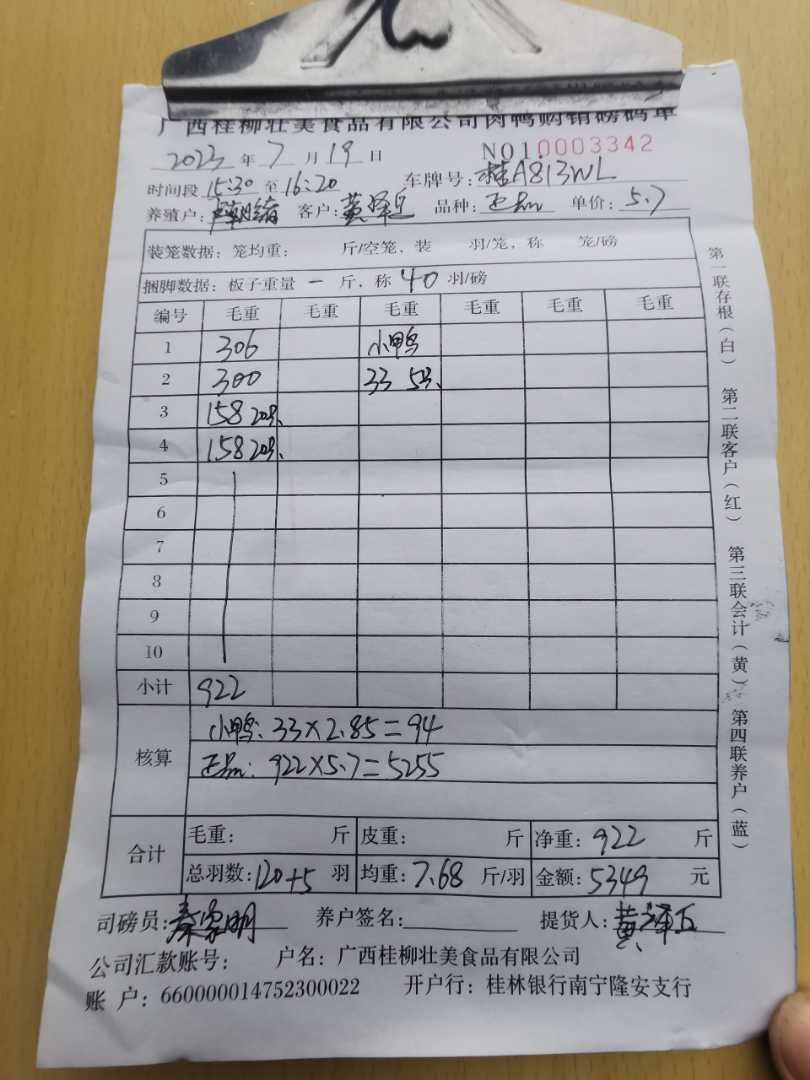 广西桂柳壮美食品有限公司肉鸭购销磅码单
2023 年 7 月 19 日 NO10003342
时间段 15:30 至 16:20 车牌号: 桂A813WL
养殖户: 客户: 黄泽丘 品种: 正品 单价: 5.7
装笼数据: 笼均重: 斤/空笼、装 羽/笼, 称 笼/磅
捆脚数据: 板子重量 一 斤, 称 40 羽/磅
编号 毛重 毛重 毛重 毛重 毛重 毛重
1 306 小鸭
2 300 33 5只、
3 158 20只、
4 158 20只、
5
6
7
8
9
10
小计 922
核算 小鸭: 33×2.85=94
正品: 922×5.7=5255
合计 毛重: 斤 皮重: 斤 净重: 922 斤
总羽数: 120+5 羽 均重: 7.68 斤/羽 金额: 5349 元
司磅员: 秦家明 养户签名: 提货人: 黄泽丘
公司汇款账号: 户名: 广西桂柳壮美食品有限公司
账 户: 660000014752300022 开户行: 桂林银行南宁隆安支行
第一联存根(白) 第二联客户(红) 第三联会计(黄) 第四联养户(蓝)